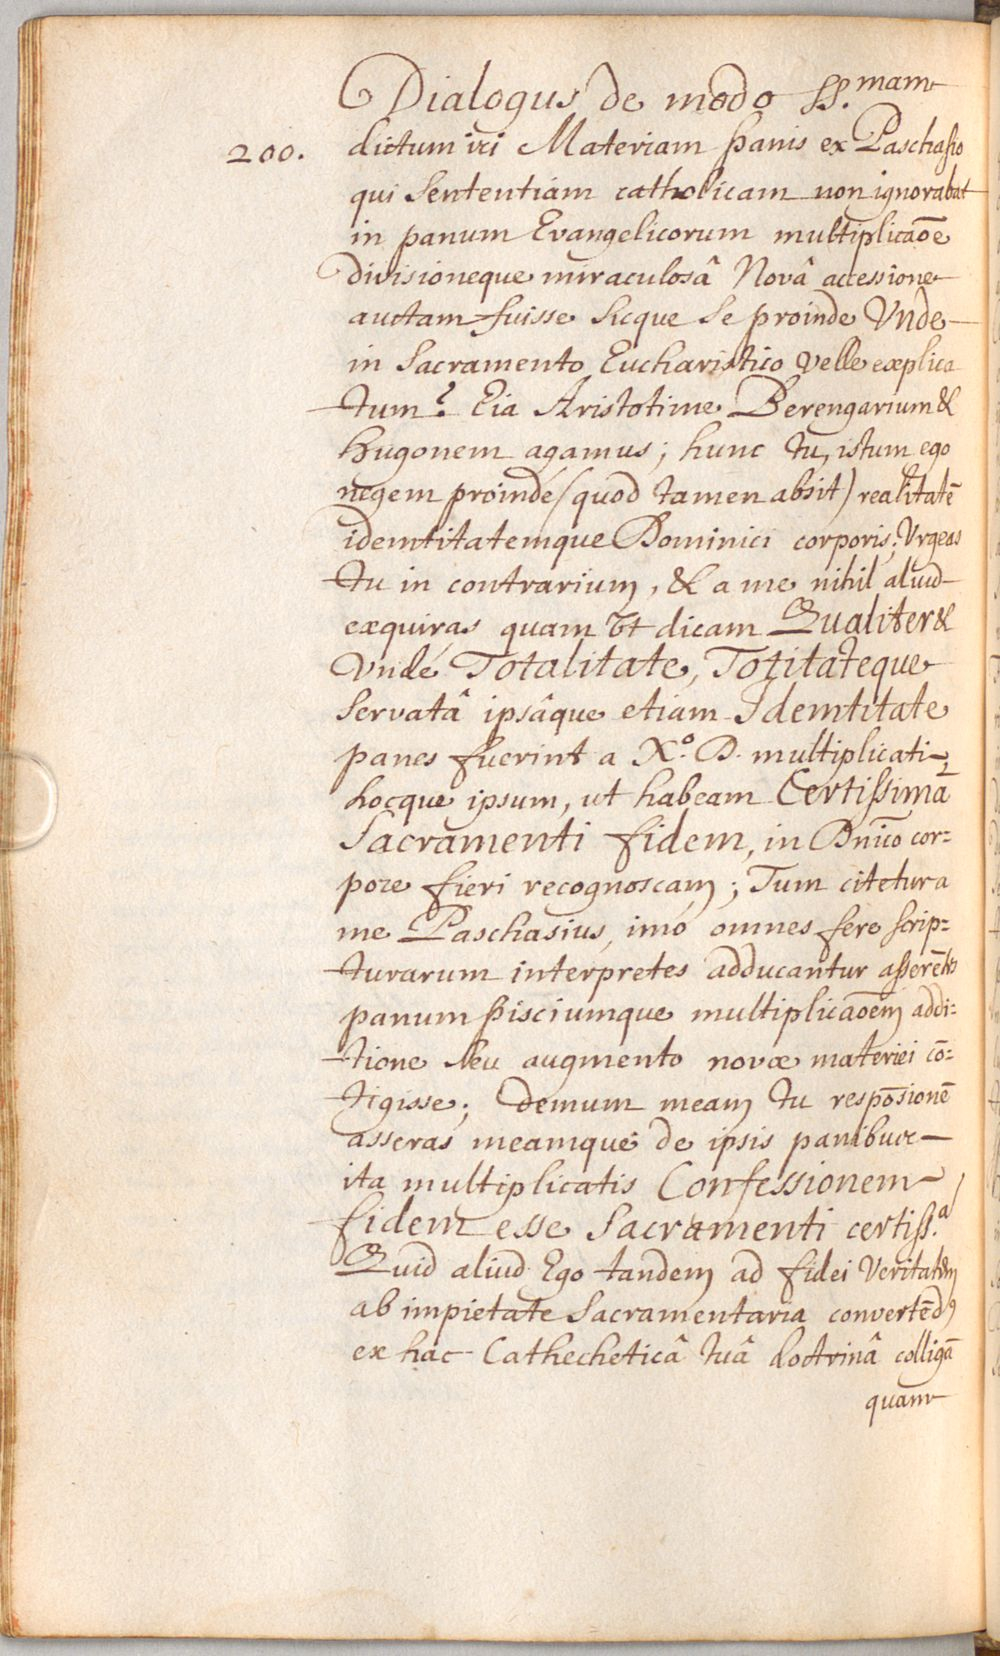 Dialogus de modo SS.mam
200. dictum iri Materiam panis ex Paschasio
qui Sententiam catholicam non ignorabat
in panum Evangelicorum multiplicaōe
divisioneque miraculosâ Novâ accessione
auctam fuisse sicque se proinde Vnde
in Sacramento Eucharistico velle explica
tum? Eia Aristotime Berengarium &
Hugonem agamus; hunc tu, istum ego
negem proinde (quod tamen absit) realitatē
idemtitatemque Dominici corporis; Vrgeas
tu in contrarium, & a me nihil aliud
exquiras quam vt dicam Qualiter &
Vndé Totalitate, Totitateque
servatâ ipsâque etiam Idemtitate
panes fuerint a Xº. D. multiplicati,
hocque ipsum, ut habeam Certissimā
Sacramenti fidem, in Dnīco cor=
pore fieri recognoscam; Tum citetur a
me Paschasius, imó omnes fere scrip=
turarum interpretes adducantur asserētes
panum pisciumque multiplicaōem addi=
tione seu augmento novæ materiei cō=
tigisse; demum meam tu respōsionē
asseras meamque de ipsis panibus
ita multiplicatis Confessionem
fidem esse Sacramenti certiss.a
Quid aliud Ego tandem ad fidei Veritatem
ab impietate Sacramentaria convertēd9
ex hac Cathecheticâ tuâ doctrinâ colligā
quam